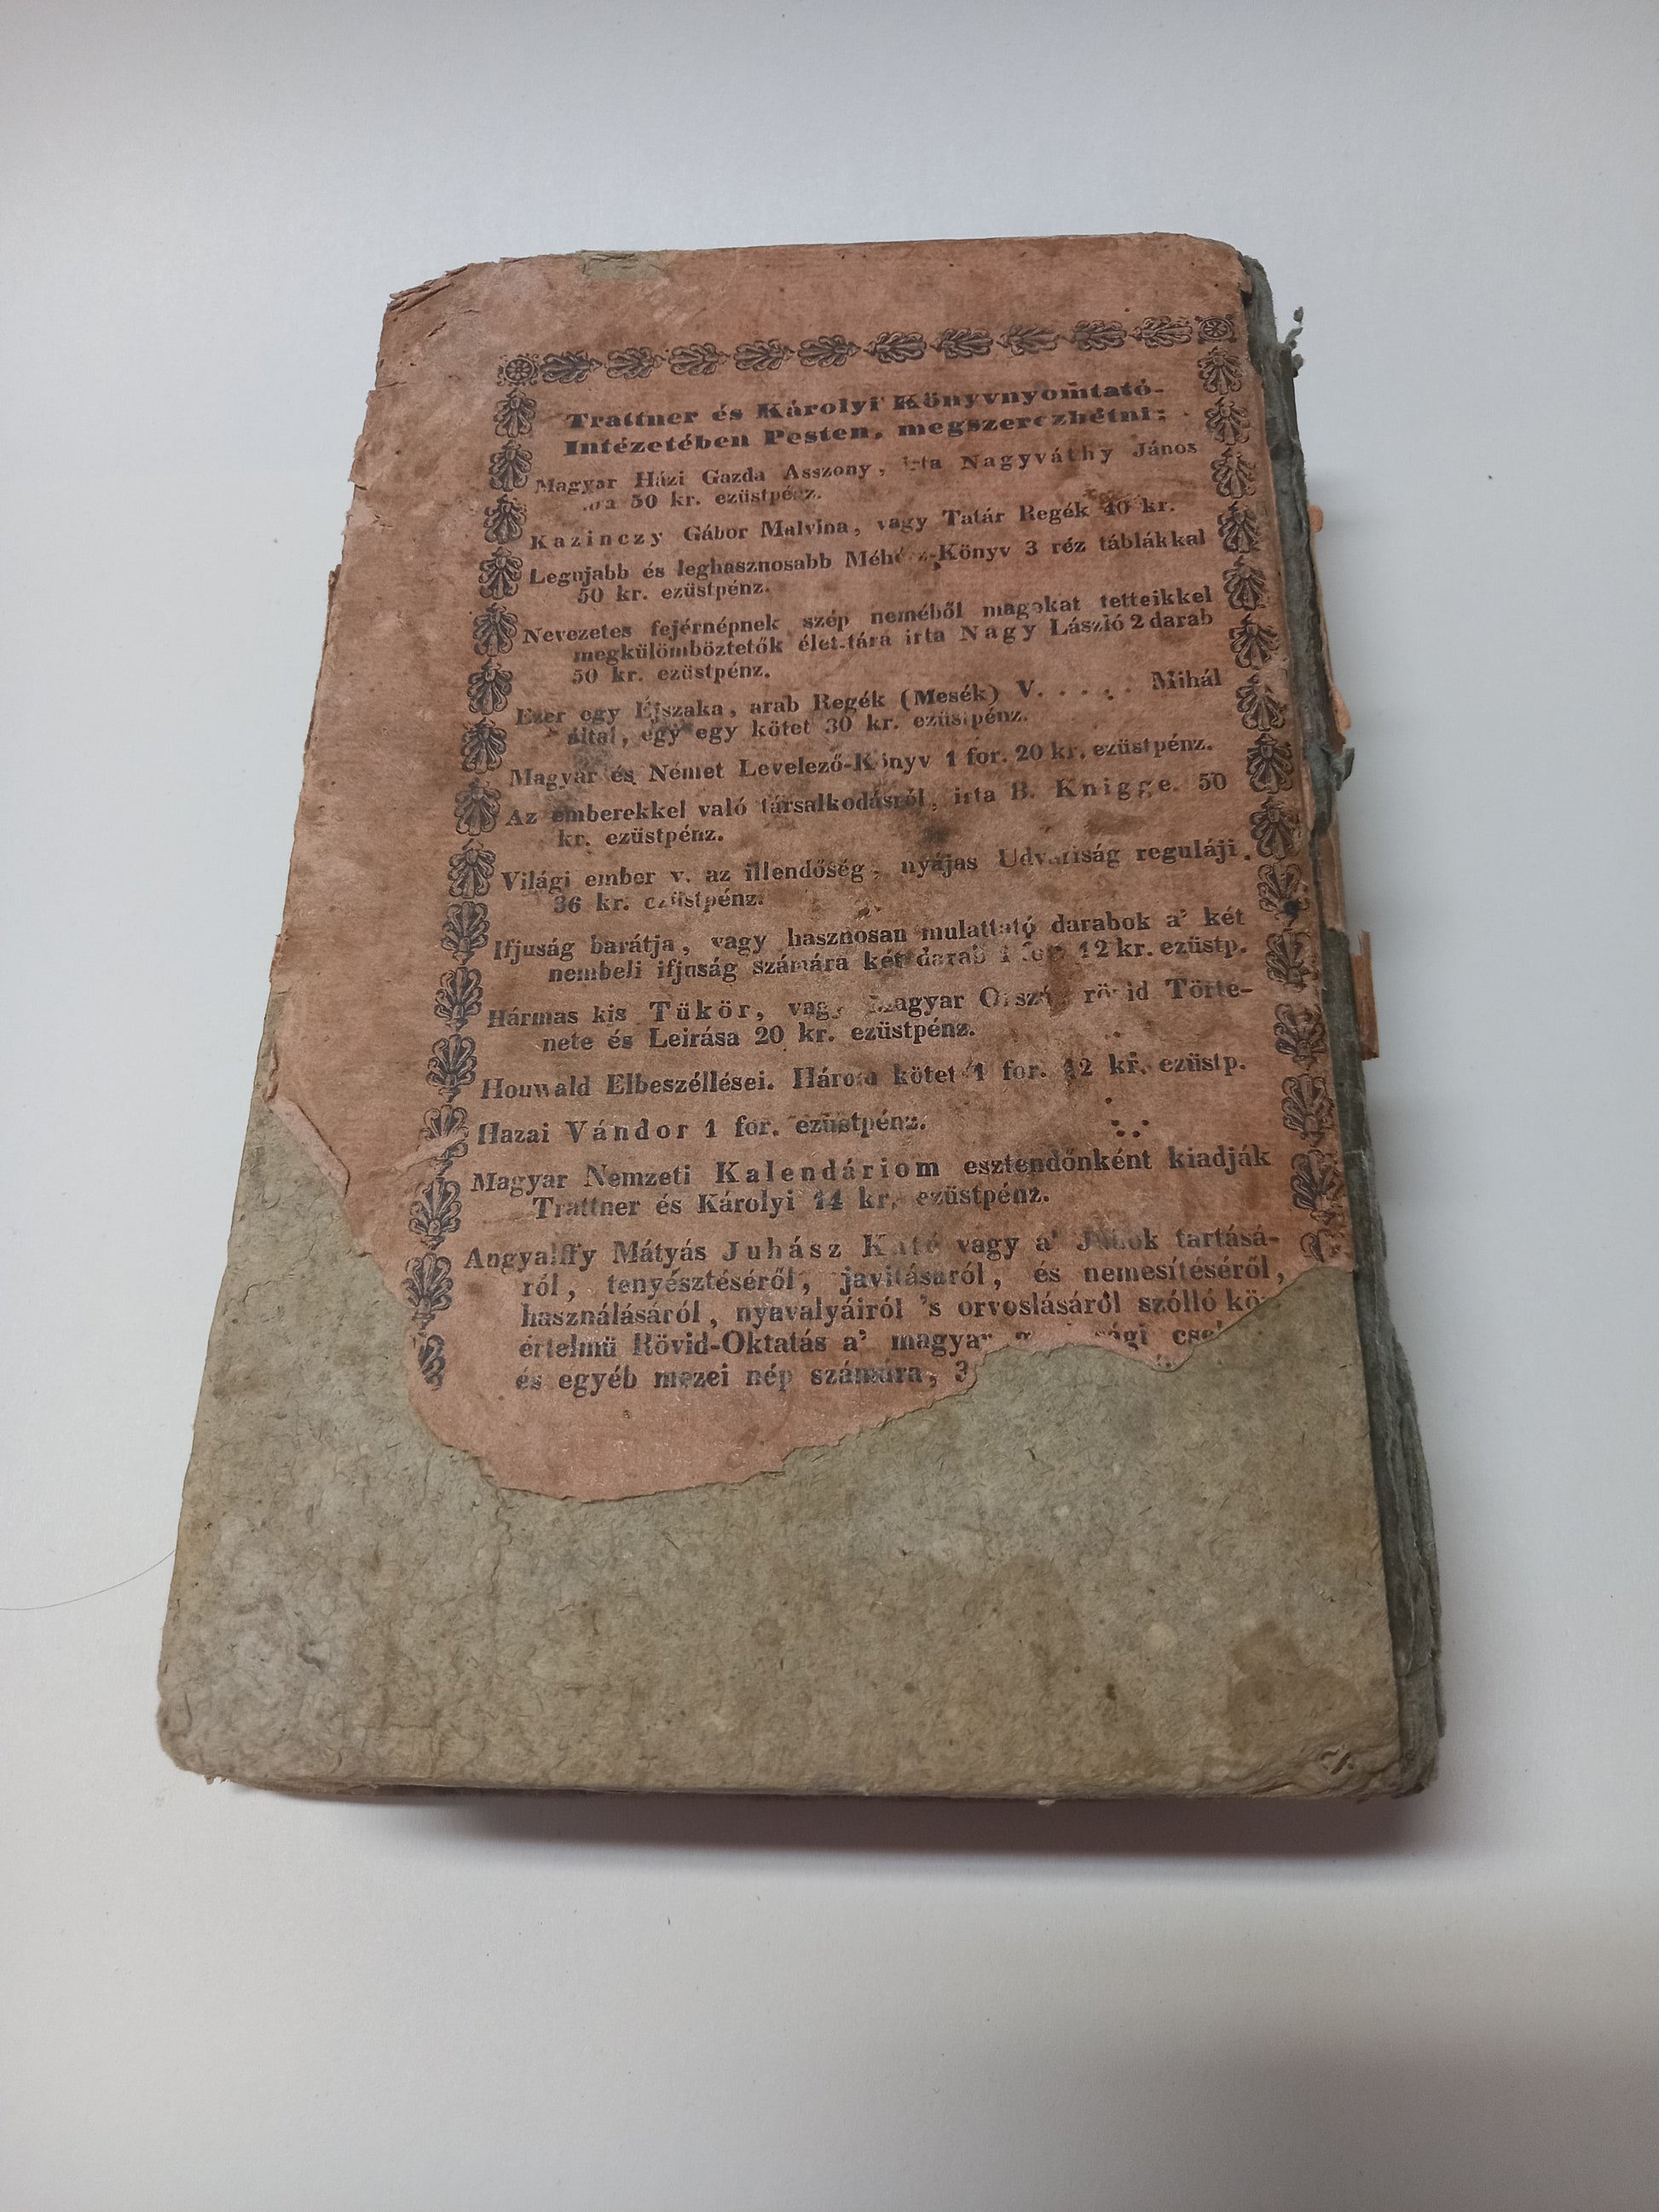 Trattner és Károlyi Könyvnyomtató-
Intézetében Pesten, megszerezhetni:
Magyar Házi Gazda Asszony, irta Nagyváthy János
50 kr. ezüstpénz.
Kazinczy Gábor Malvina, vagy Tatár Regék 40 kr.
Legujabb és leghasznosabb Méhész-Könyv 3 réz táblákkal
50 kr. ezüstpénz.
Nevezetes fejérnépnek szép neméből magokat tetteikkel
megkülömböztetők élet-tára irta Nagy László 2 darab
50 kr. ezüstpénz.
Ezer egy Éjszaka, arab Regék (Mesék) V. . . . . Mihál
által, egy egy kötet 30 kr. ezüstpénz.
Magyar és Német Levelező-Könyv 1 for. 20 kr. ezüstpénz.
Az emberekkel való társalkodásról, irta B. Knigge. 50
kr. ezüstpénz.
Világi ember v. az illendőség, nyájas Udvariság reguláji.
36 kr. ezüstpénz.
Ifjuság barátja, vagy hasznosan mulattató darabok a' két
nembeli ifjuság számára két darab 1 for. 12 kr. ezüstp.
Hármas kis Tükör, vagy Magyar Ország rövid Törte-
nete és Leirása 20 kr. ezüstpénz.
Houwald Elbeszéllései. Három kötet 1 for. 12 kr. ezüstp.
Hazai Vándor 1 for. ezüstpénz.
Magyar Nemzeti Kalendáriom esztendőnként kiadják
Trattner és Károlyi 14 kr. ezüstpénz.
Angyalffy Mátyás Juhász Káté vagy a' Juhok tartásá-
ról, tenyésztéséről, javitásáról, és nemesítéséről,
használásáról, nyavalyáiról 's orvoslásáról szólló
értelmü Rövid-Oktatás a' magyar
és egyéb mezei nép számára, 3